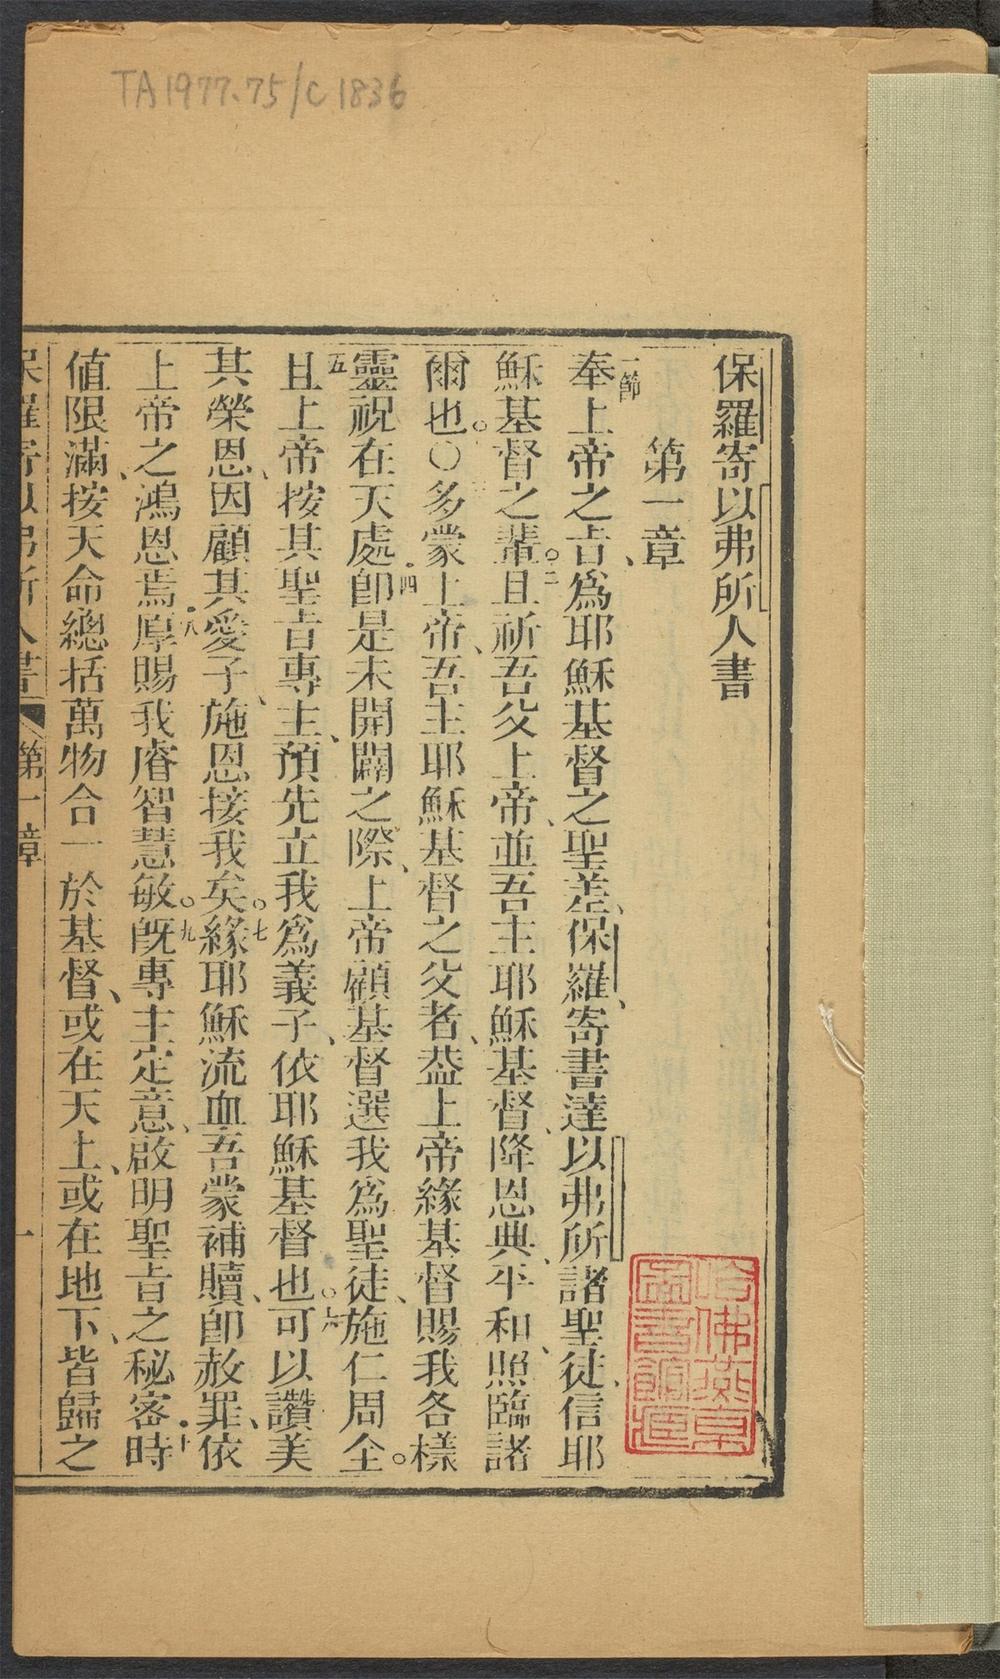 TA 1977.75/C1836
保羅寄以弗所人書
第一章
一節奉上帝之旨、爲耶穌基督之聖差、保羅、寄書達以弗所諸聖徒、信耶
穌基督之輩。二且祈吾父上帝、並吾主耶穌基督、降恩典、平和、照臨諸
爾也。○三多蒙上帝、吾主耶穌基督之父者、葢上帝緣基督賜我各樣
靈祝在天處、四卽是未開闢之際、上帝顧基督選我爲聖徒、施仁周全。
五且上帝按其聖旨專主、預先立我爲義子、依耶穌基督也。六可以讚美
其榮恩、因顧其愛子、施恩接我矣。七緣耶穌流血吾蒙補贖、卽赦罪、依
上帝之鴻恩焉、八厚賜我睿智慧敏。九旣專主定意、啟明聖旨之秘密、十時
值限滿、按天命總括萬物合一於基督、或在天上、或在地下、皆歸之
保羅寄以弗所人書 第一章 一
哈佛燕京
圖書館藏